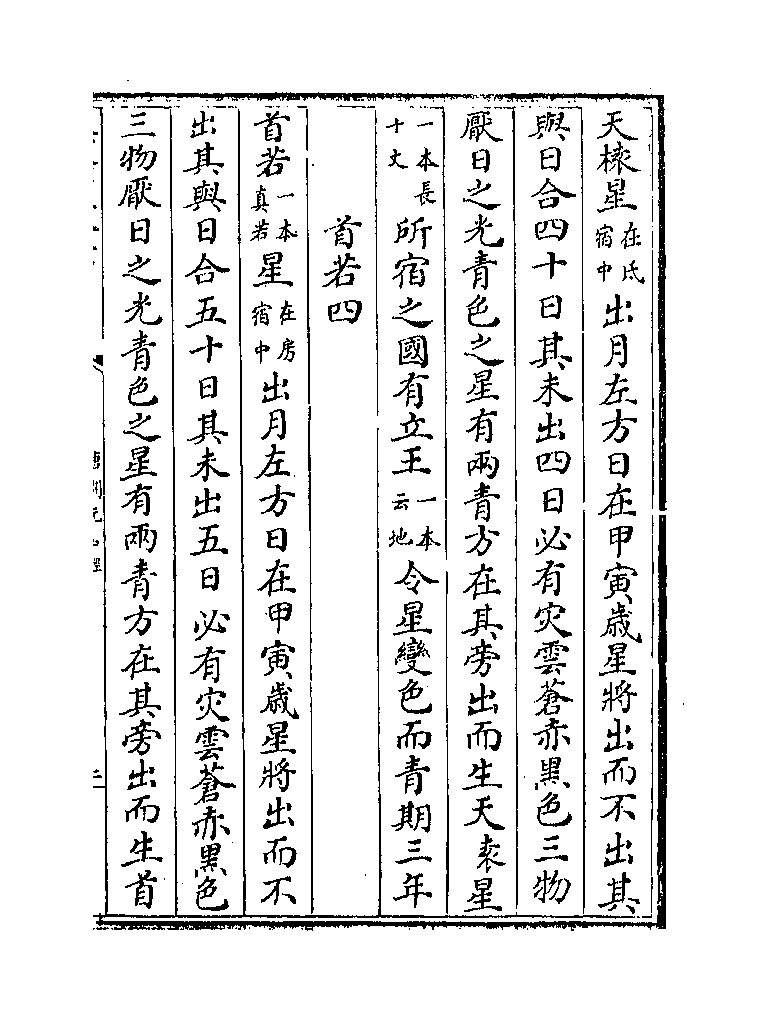 天榱星在氐宿中出月左方日在甲寅歲星將出而不出其
與日合四十日其未出四日必有灾雲蒼赤黑色三物
厭日之光青色之星有兩青方在其旁出而生天榱星
一本長十丈所宿之國有立王一本云地令星變色而青期三年
首若四
首若一本真若星在房宿中出月左方日在甲寅歲星將出而不
出其與日合五十日其未出五日必有灾雲蒼赤黑色
三物厭日之光青色之星有兩青方在其旁出而生首
唐開元占經